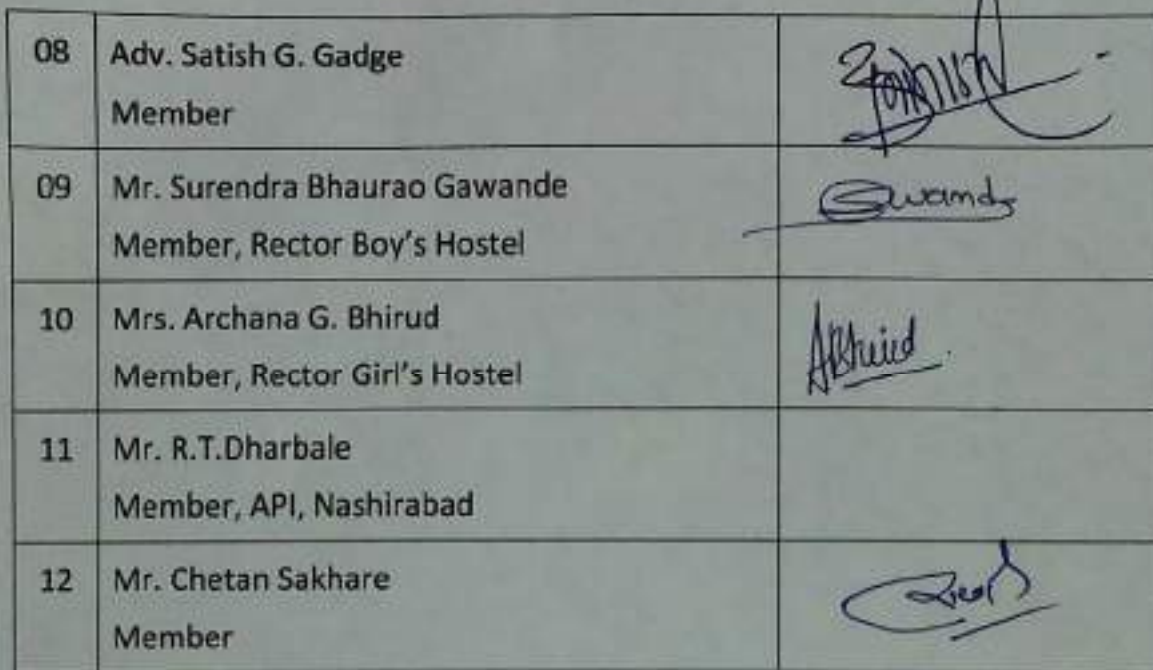 08 Adv. Satish G. Gadge
Member
09 Mr. Surendra Bhaurao Gawande
Member, Rector Boy's Hostel
10 Mrs. Archana G. Bhirud
Member, Rector Girl's Hostel
ABhirud
11 Mr. R.T.Dharbale
Member, API, Nashirabad
12 Mr. Chetan Sakhare
Member